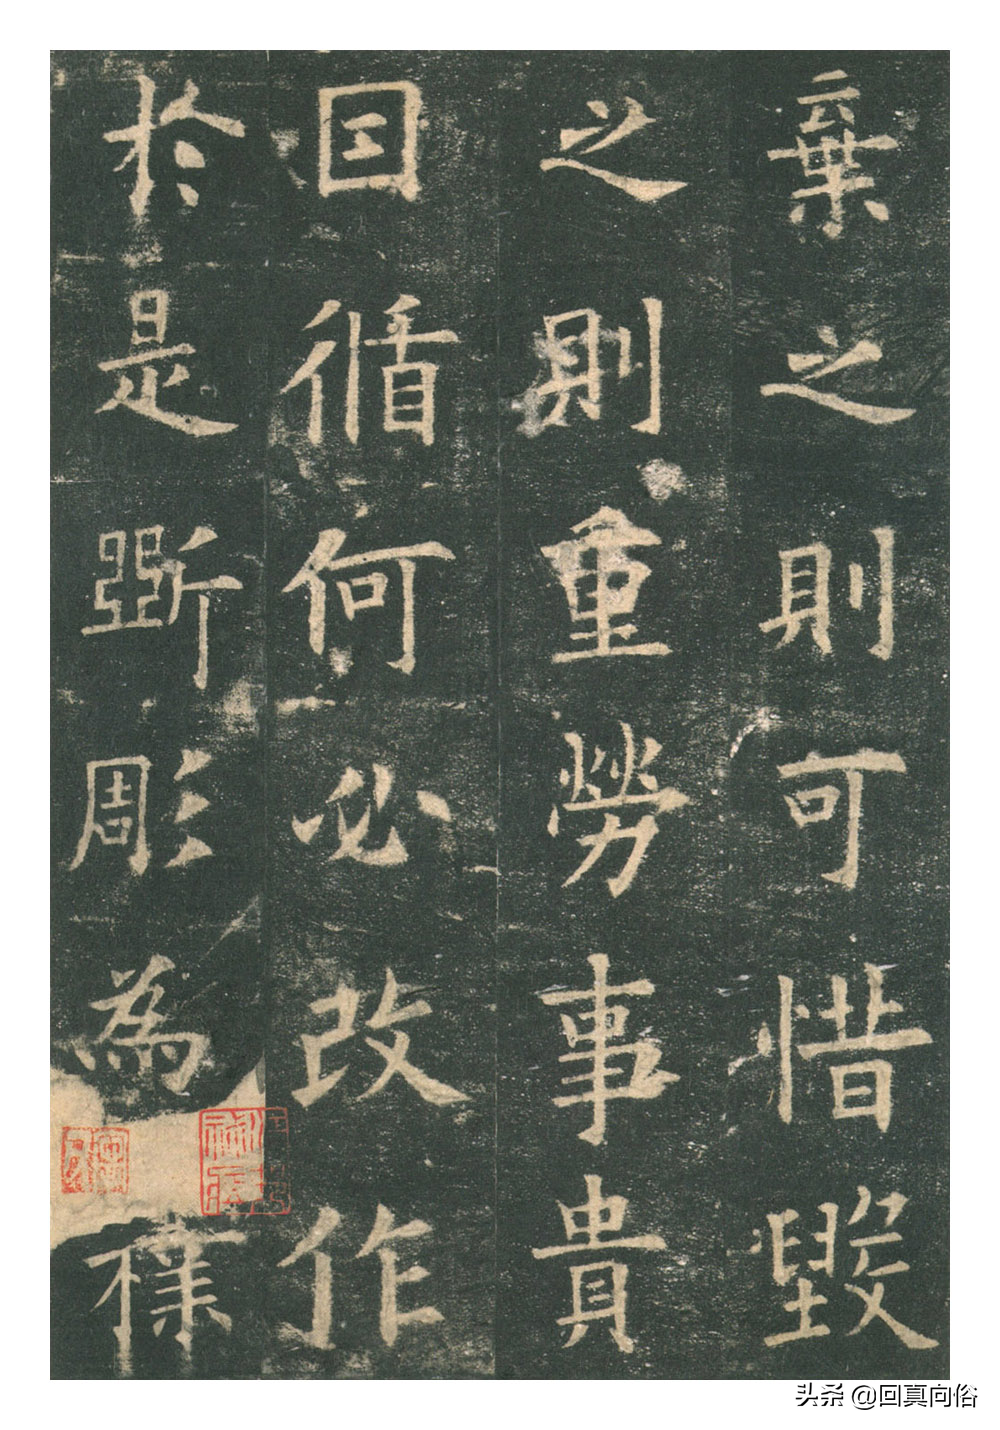 棄之則可惜毀
之則重勞事貴
因循何必改作
於是斲彫為樸
头条 @回真向俗